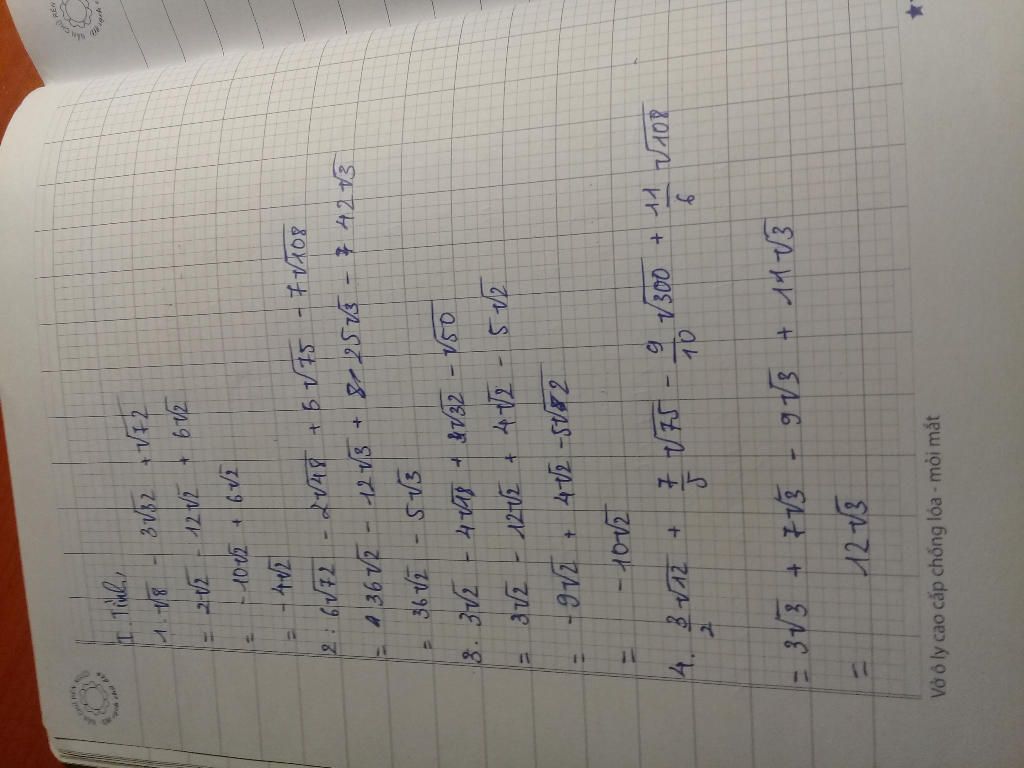 II. Tính,
1. √8 - 3√32 + √72
= 2√2 - 12√2 + 6√2
= -10√2 + 6√2
= -4√2
2. 6√72 - 2√48 + 5√75 - 7√108
= 36√2 - 12√3 + 25√3 - 42√3
= 36√2 - 5√3
3. 3√2 - 4√18 + √32 - √50
= 3√2 - 12√2 + 4√2 - 5√2
= -9√2 + 4√2 - 5√2
= -10√2
4. 3/2 √12 + 7/5 √75 - 9/10 √300 + 11/6 √108
= 3√3 + 7√3 - 9√3 + 11√3
= 12√3
Vở ô ly cao cấp chống lóa - mỏi mắt